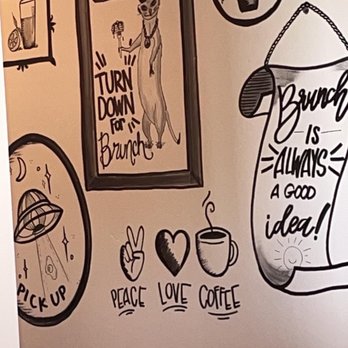 TURN
DOWN
For
Brunch
Brunch
IS
ALWAYS
A GOOD
idea!
PICK UP
PEACE LOVE COFFEE